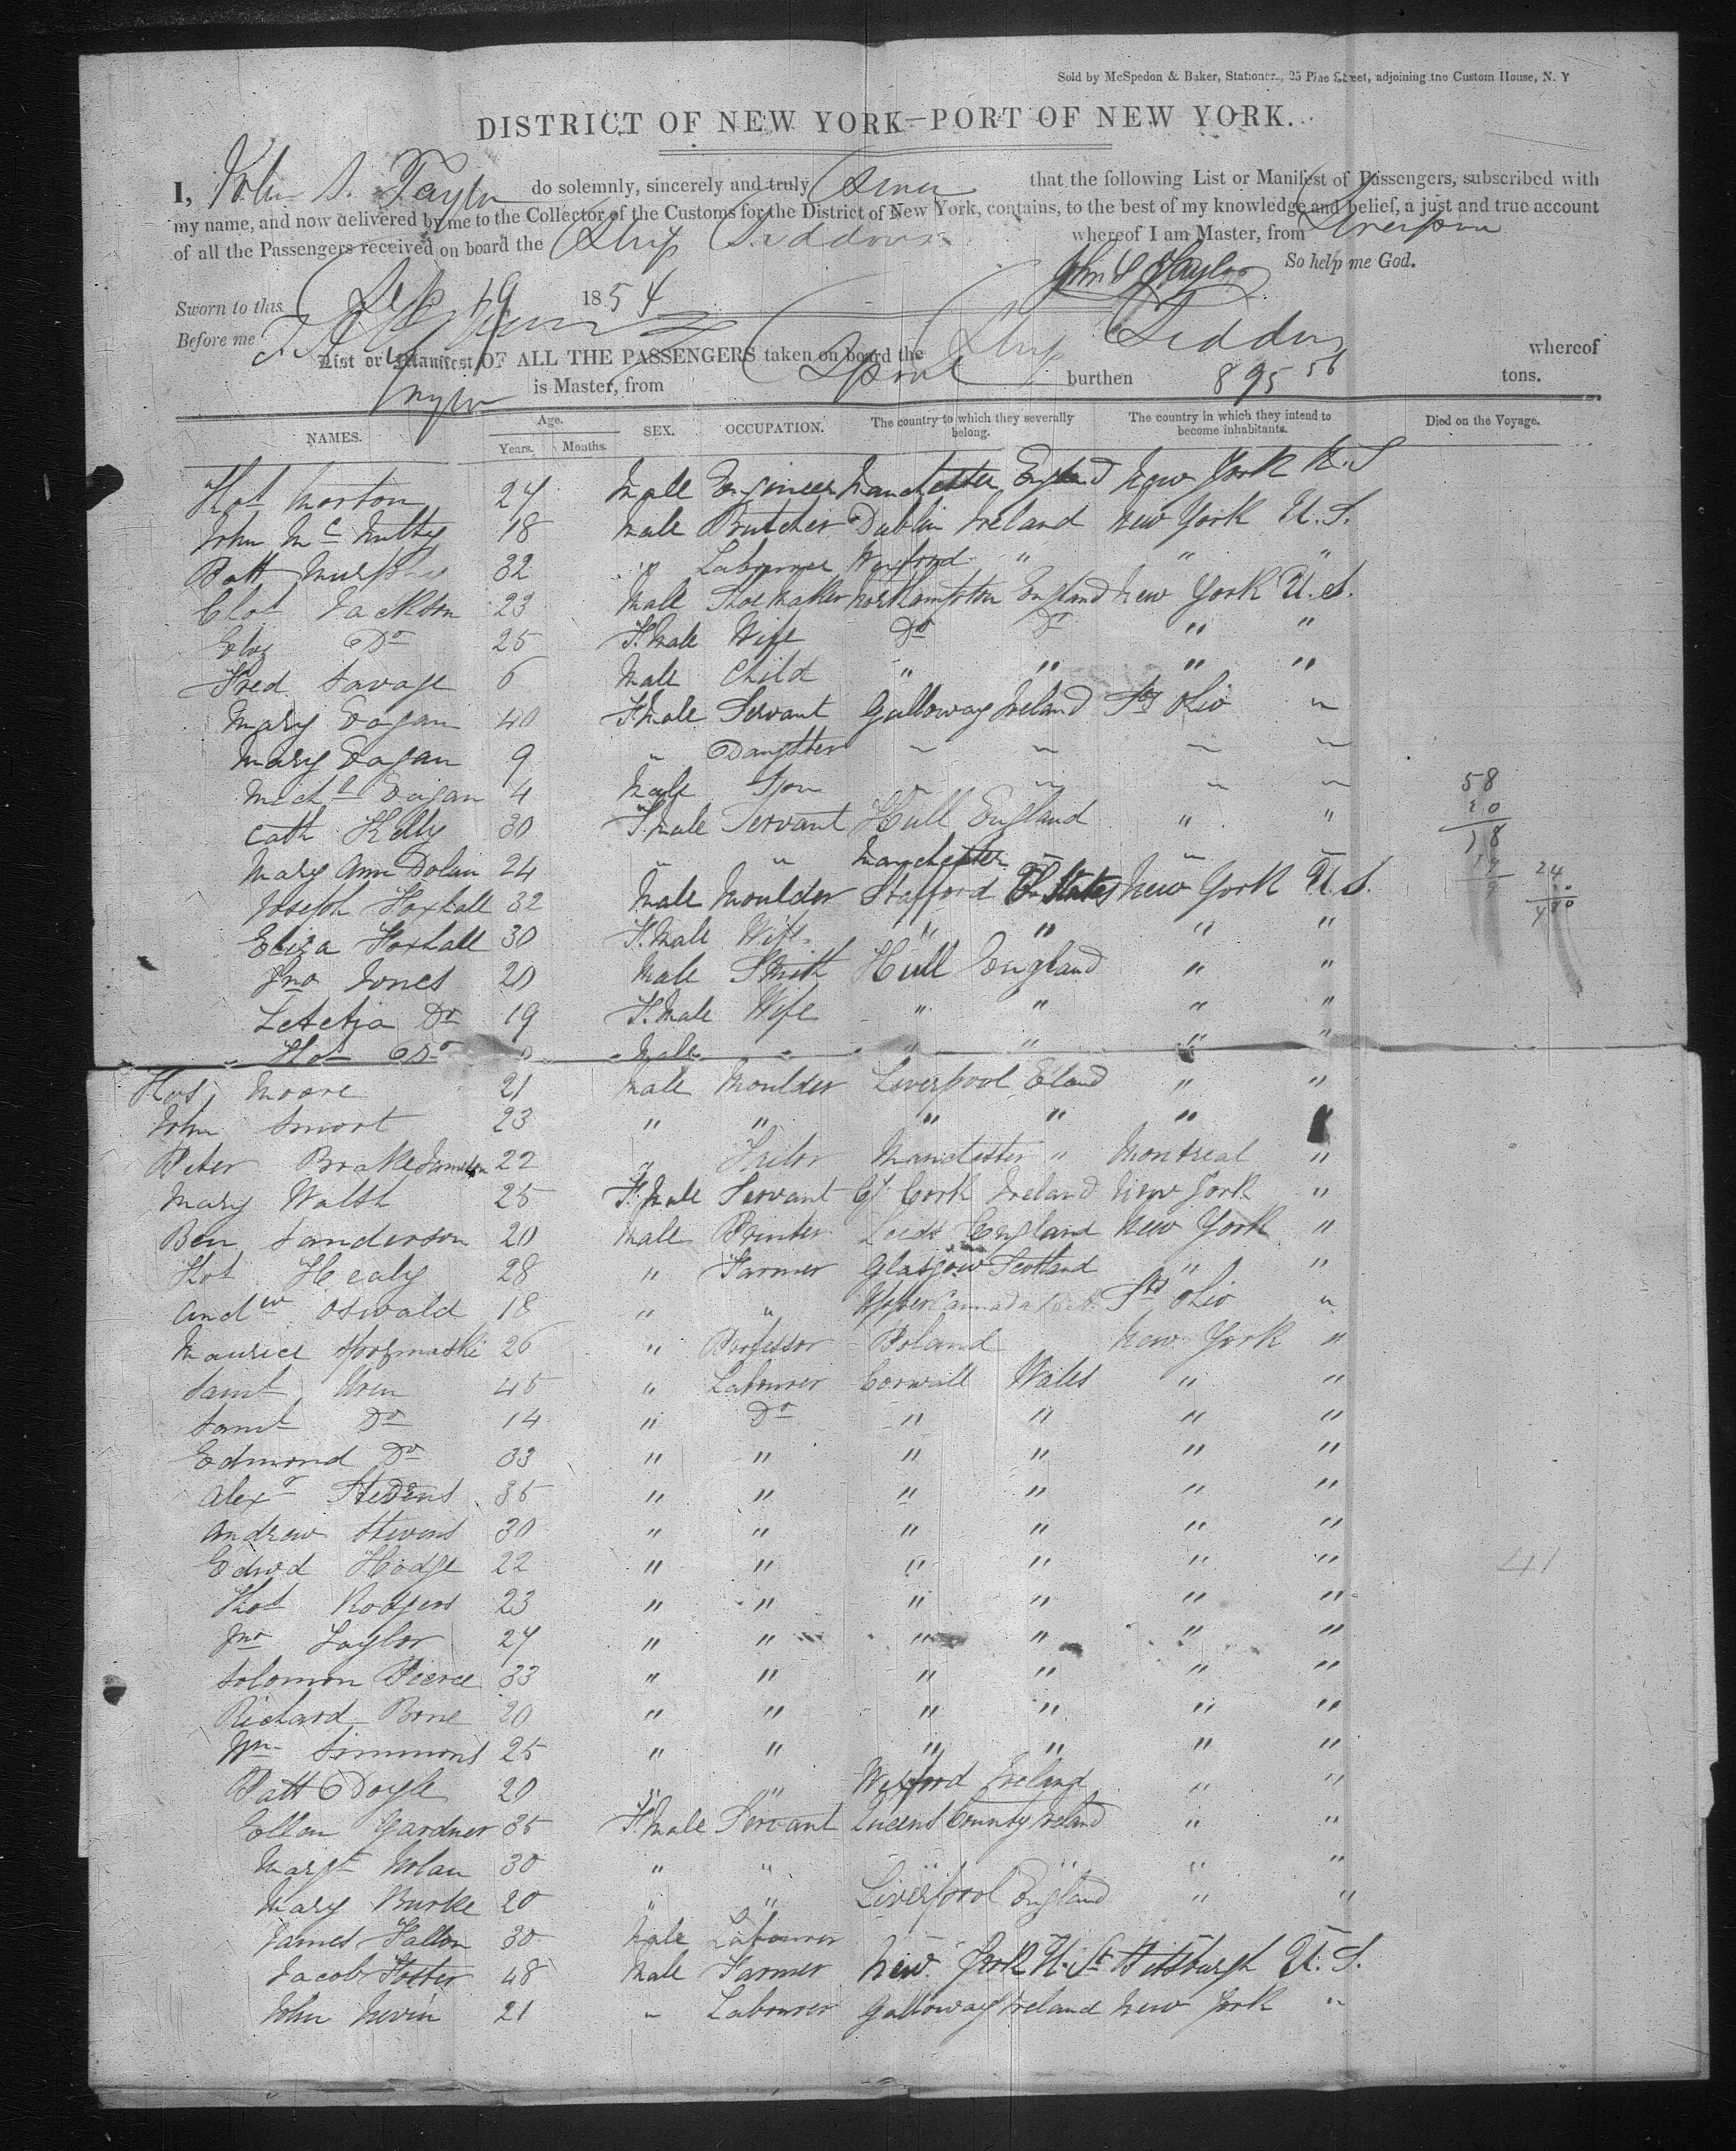 Sold by McSpedon & Baker, Stationers, 25 Pine Street, adjoining the Custom House, N. Y
DISTRICT OF NEW YORK—PORT OF NEW YORK.
I, John S. Taylor do solemnly, sincerely and truly Swear that the following List or Manifest of Passengers, subscribed with
my name, and now delivered by me to the Collector of the Customs for the District of New York, contains, to the best of my knowledge and belief, a just and true account
of all the Passengers received on board the Ship Siddons whereof I am Master, from Liverpool
John S Taylor So help me God.
Sworn to this Sep 19 1854
Before me
List or Manifest OF ALL THE PASSENGERS taken on board the Ship Siddons whereof
Taylor is Master, from Lpool burthen 895 56 tons.
NAMES. Age. Years. Months. SEX. OCCUPATION. The country to which they severally belong. The country in which they intend to become inhabitants. Died on the Voyage.
Morton 24 Male Engineer Manchester England New York U.S
John McNulty 18 Male Butcher Dublin Ireland New York U.S.
Patt Murphy 32 " Labourer Wexford " " "
Jackson 23 Male Shoemaker Northampton England New York U.S.
Do 25 F.Male Wife Do Do " "
Fred Savage 6 Male Child " " " "
Mary Eagan 40 F.Male Servant Galloway Ireland Ohio "
Mary Eagan 9 " Daughter " " " "
Michl Eagan 4 Male Son " " " "
Cath Kelly 30 F.Male Servant Hull England " "
Mary Ann Dolan 24 " " Manchester " " "
Joseph Hoxhall 32 Male Moulder Stafford New York U.S.
Eliza Hoxhall 30 F.Male Wife " " " "
Jno Jones 20 Male Smith Hull England " "
Letetia Do 19 F.Male Wife " " " "
Do Male " " " "
Moore 21 Male Moulder Liverpool Eland " "
John Smort 23 " " " " "
Peter 22 " Manchester " Montreal "
Mary Walsh 25 F.Male Servant Cy Cork Ireland New York "
Ben Sanderson 20 Male Printer Leeds England New York "
Healy 28 " Farmer Glasgow Scotland " "
Andew Oswald 18 " " Upper Canada Ohio "
Maurice 26 " Porfessor Poland New York "
Saml Wren 45 " Labourer Corwall Wales " "
Saml Do 14 " Do " " " "
Edmond Do 33 " " " " " "
Alexr Stevens 35 " " " " " "
Andrew Stevens 30 " " " " " "
Edwd Hodge 22 " " " " " "
Rodgers 23 " " " " " "
Jno Taylor 24 " " " " " "
Solomon Pierce 33 " " " " " "
Richard Bone 20 " " " " " "
Wm Simmons 25 " " " " " "
Patt Doyle 20 " " Wexford Ireland " "
Ellen Gardner 35 F.Male Servant Queens County Ireland " "
Margt Nolan 30 " " " " " "
Mary Burke 20 " " Liverpool England " "
James Fallon 30 Male Labourer " " " "
Jacob Foster 48 Male Farmer New York U.S. Pittsburgh U.S.
John Nevin 21 " Labourer Galloway Ireland New York "
58
20
78
24
480
41